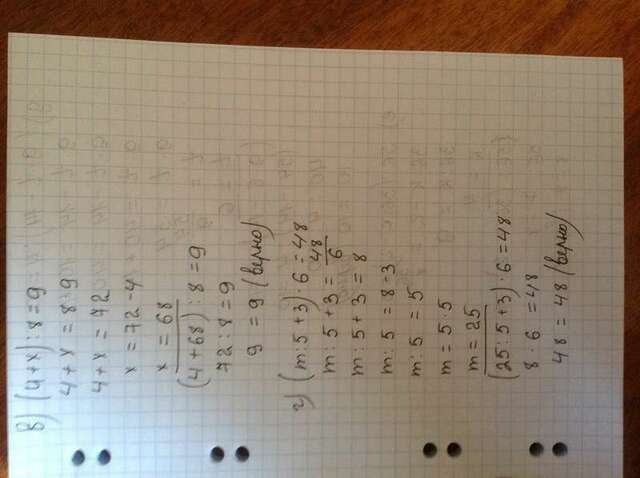 в) (4+x):8=9
4+x = 8·9
4+x = 72
x = 72-4
x = 68
(4+68):8=9
72:8=9
9 = 9 (верно)
г) (m:5+3)·6=48
m:5+3= 48/6
m:5+3 = 8
m:5 = 8-3
m:5 = 5
m = 5·5
m = 25
(25:5+3)·6=48
8·6 =48
48 = 48 (верно)